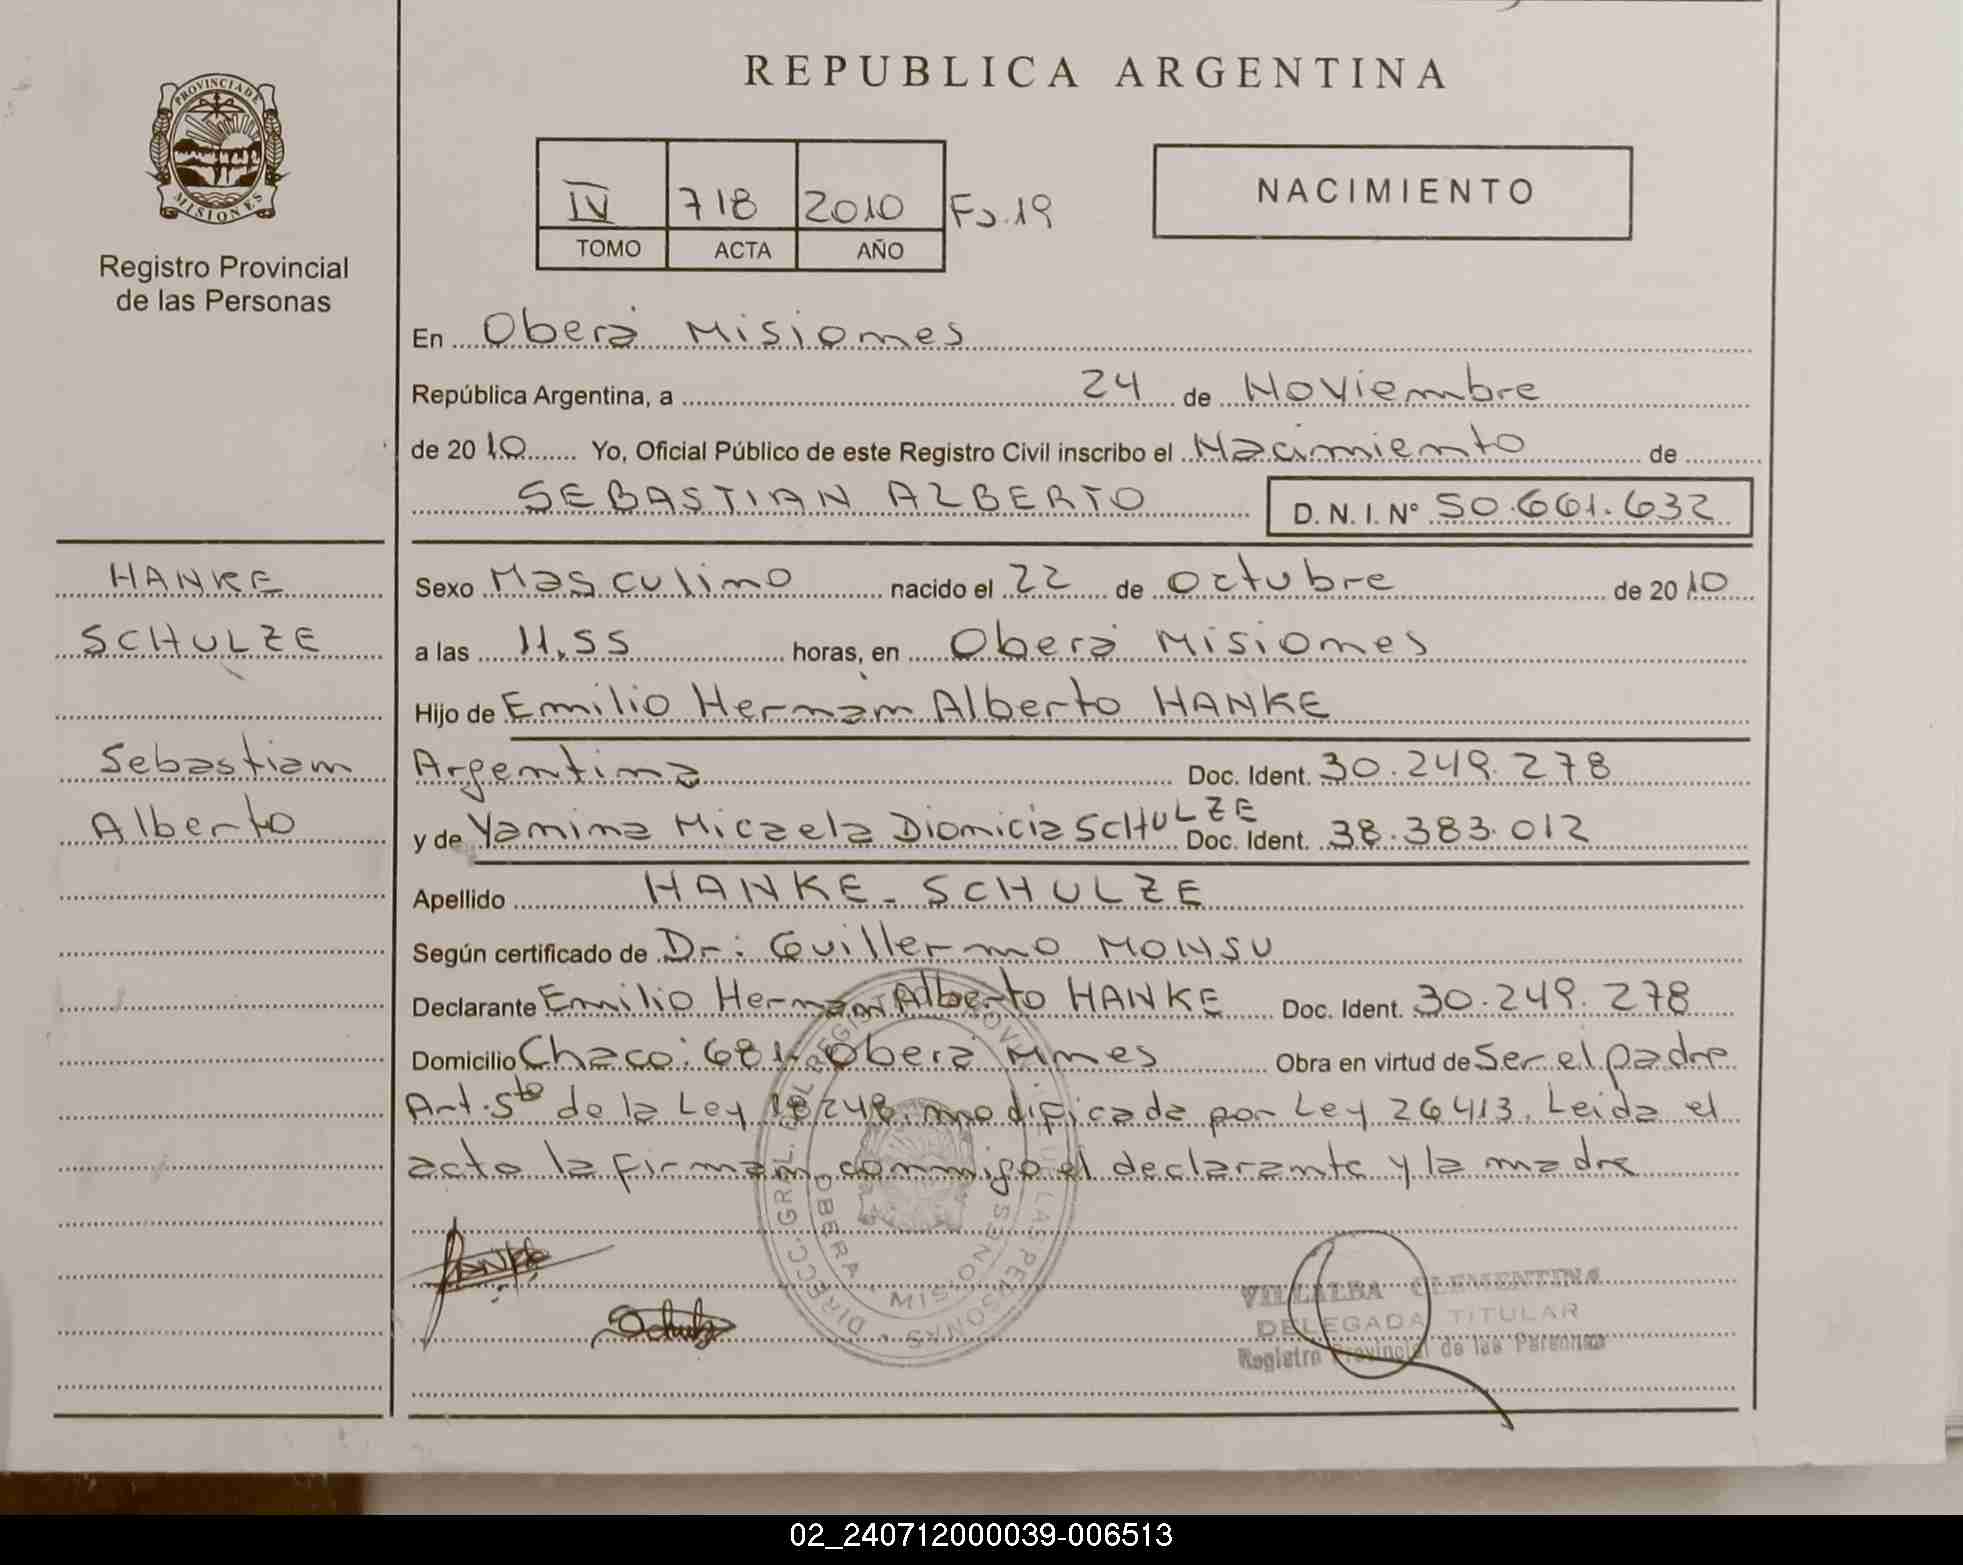 REPUBLICA ARGENTINA
PROVINCIA DE
MISIONES
Registro Provincial
de las Personas
IV 718 2010 Fo.19
TOMO ACTA AÑO
NACIMIENTO
En Oberá Misiones
República Argentina, a 24 de Noviembre
de 2010 Yo, Oficial Público de este Registro Civil inscribo el Nacimiento de
SEBASTIAN ALBERTO D. N. I. N° 50.661.632
HANKE
SCHULZE
Sebastian
Alberto
Sexo Masculino nacido el 22 de Octubre de 2010
a las 11,55 horas, en Oberá Misiones
Hijo de Emilio Hernán Alberto HANKE
Argentina Doc. Ident. 30.249.278
y de Yamina Micaela Dionicia SCHULZE Doc. Ident. 38.383.012
Apellido HANKE - SCHULZE
Según certificado de Dr: Guillermo MONSU
Declarante Emilio Hernan Alberto HANKE Doc. Ident. 30.249.278
Domicilio Chaco: 681. Oberá Mnes Obra en virtud de Ser el padre
Art. 5to de la Ley 18248, modificada por Ley 26413, Leida el
acta la firman conmigo el declarante y la madre
DIRECC. GRAL. DEL REGISTRO PROV. DE LAS PERSONAS
OBERA MISIONES
VILLALBA CLEMENTINA
DELEGADA TITULAR
Registro Provincial de las Personas
02_240712000039-006513